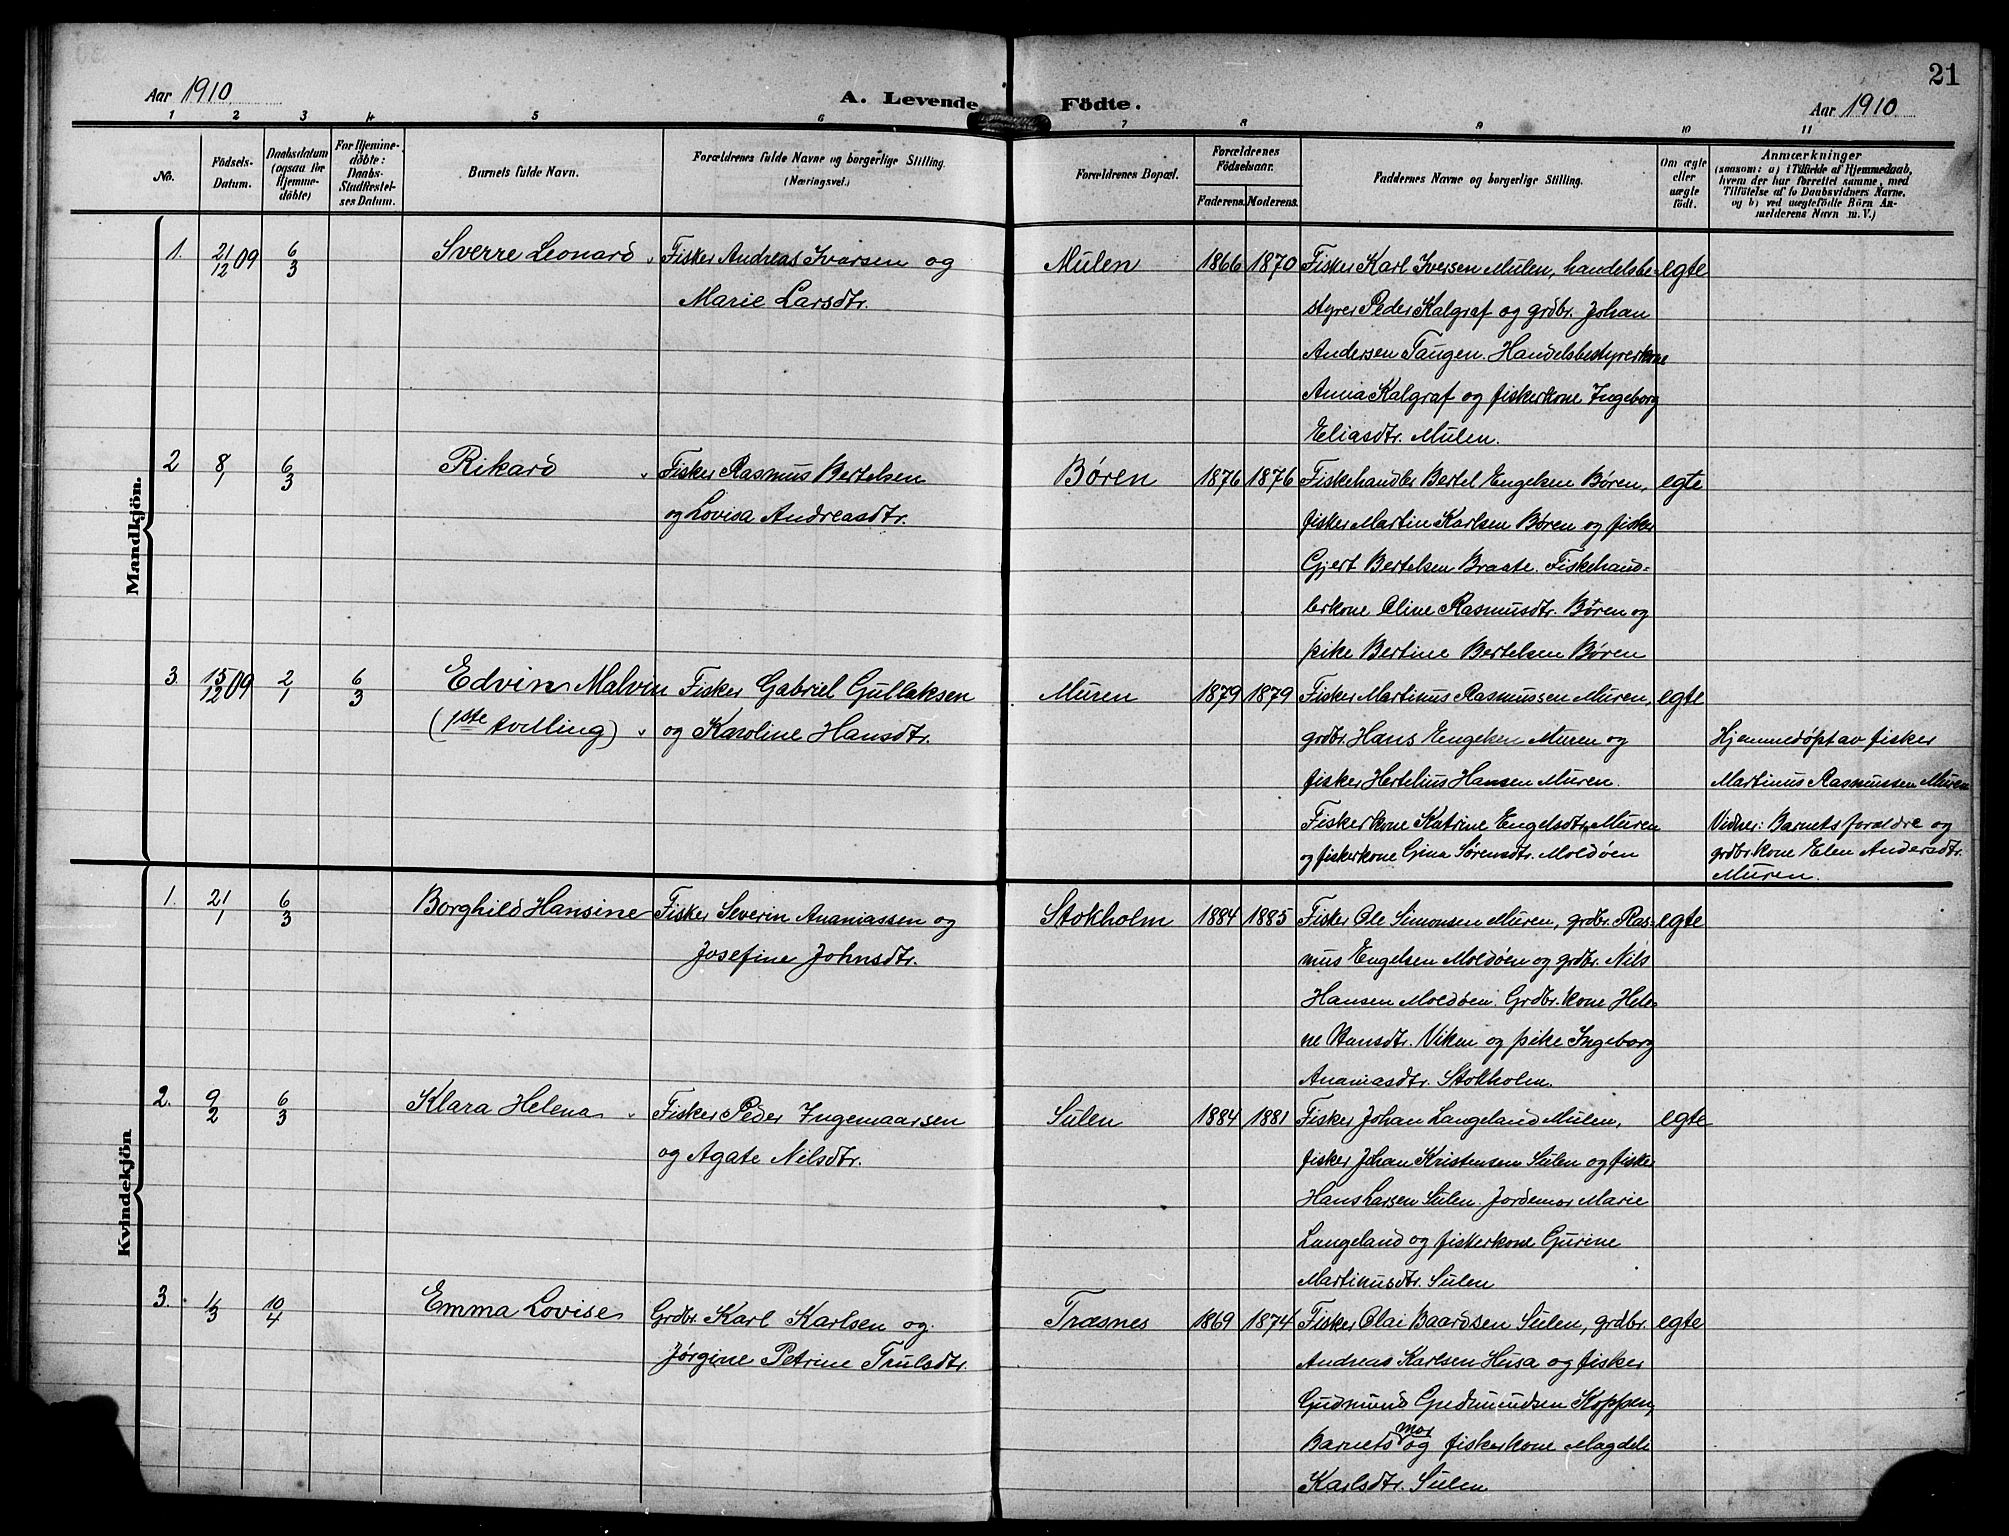 21
Aar 1910
A. Levende Födte.
Aar 1910
1 2 3 4 5 6 7 8 9 10 11
No.
Födsels-Datum.
Daabsdatum (ogsaa for Hjemmedöbte)
For Hjemmedöbte: Daabs-Stadfæstelses Datum.
Barnets fulde Navn.
Forældrenes fulde Navne og borgerlige Stilling.
(Næringsvei.)
Forældrenes Bopæl.
Forældrenes Födselsaar.
Faderens. Moderens.
Faddernes Navne og borgerlige Stilling.
Om ægte eller uægte födt.
Anmærkninger
(saasom: a) i Tilfælde af Hjemmedaab,
hvem der har forrettet samme, med
Tilföielse af to Daabsvidners Navne,
og b) ved uægtefödte Börn An-
melderens Navn m. V.)
Mandkjön.
1. 21/12 09 6/3 Sverre Leonard Fisker Andreas Ivarsen og Mulen 1866 1870 Fisker Karl Iversen Mulen, handelsbe- egte
Marie Larsdtr. styrer Peder Kalgraf og grdbr. Johan
Andersen Taugen. Handelsbestyrerkone
Anna Kalgraf og fiskerkone Ingeborg
Eliasdtr. Mulen.
2 8/1 6/3 Rikard Fisker Rasmus Bertelsen Børen 1876 1876 Fiskehandler Bertel Engelsen Børen, egte
og Lovisa Andreasdtr. fisker Martin Karlsen Børen og fisker
Gjert Bertelsen Braate. Fiskehand-
lerkone Oline Rasmusdtr. Børen og
pike Bertine Bertelsen Børen
3. 15/12 09 2/1 6/3 Edvin Malvin Fisker Gabriel Gullaksen Muren 1879 1879 Fisker Martinus Rasmussen Muren, egte
(1ste tvilling) og Karoline Hansdtr. grdbr. Hans Engelsen Muren og Hjemmedøpt av fisker
fisker Hertelius Hansen Muren. Martinus Rasmussen Muren
Fiskerkone Katrine Engelsdtr. Muren Vidner: Barnets forældre og
og fiskerkone Gina Sørensdtr. Moldøen grdbr.kone Elen Andersdtr.
Muren.
Kvindekjön
1. 21/1 6/3 Borghild Hansine Fisker Severin Ananiassen og Stokholm 1884 1885 Fisker Ole Simonsen Muren, grdbr. Ras- egte
Josefine Johnsdtr. mus Engelsen Moldøen og grdbr. Nils
Hansen Moldøen. Grdbr. kone Hele-
ne Hansdtr. Viken og pike Ingeborg
Ananiasdtr. Stokholm.
2. 9/2 6/3 Klara Helena Fisker Peder Ingemaarsen Sulen 1884 1881 Fisker Johan Langeland Mulen, egte
og Agate Nilsdtr. fisker Johan Kristensen Sulen og fisker
Hans Larsen Sulen. Jordemor Marie
Langeland og fiskerkone Gurine
Martinusdtr. Sulen
3. 1/3 10/4 Emma Lovise Grdbr. Karl Karlsen og Træsnes 1869 1874 Fisker Olai Baardsen Sulen, grdbr. egte
Jørgine Petrine Trulsdtr. Andreas Karlsen Husa og fisker
Gudmund Gudmundsen Koppen,
Barnets mor og fiskerkone Magdeli
Karlsdtr. Sulen